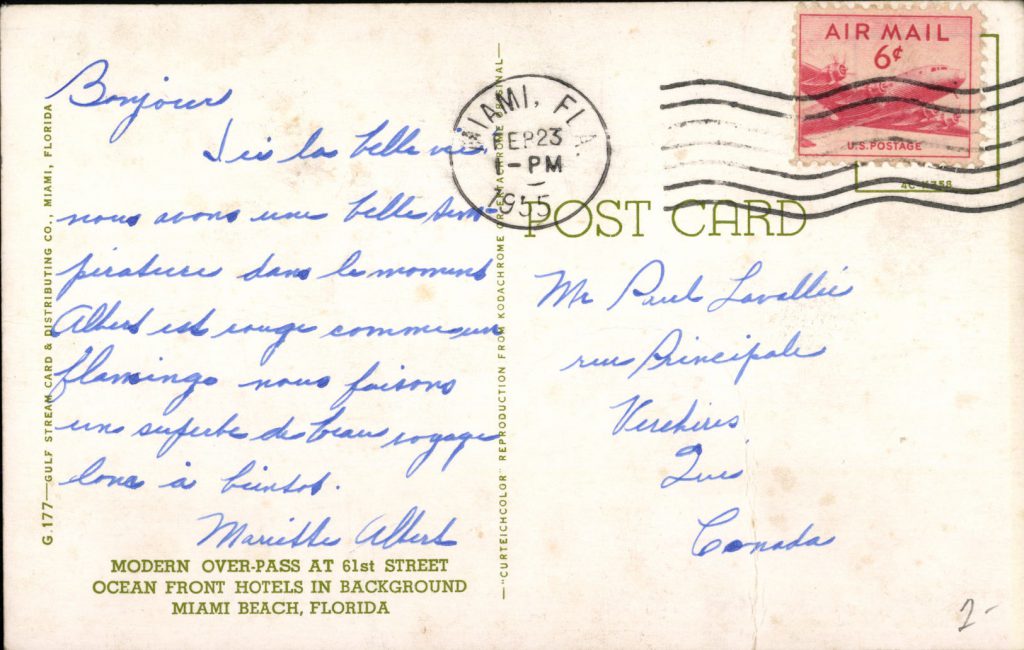 Bonjour
Ici la belle vie,
nous avons une belle tem-
pérature dans le moment
Albert est rouge comme un
flamingo nous faisons
une superbe de beau voyage
donc à bientot.
Mariette Albert
MODERN OVER-PASS AT 61st STREET
OCEAN FRONT HOTELS IN BACKGROUND
MIAMI BEACH, FLORIDA
G.177—GULF STREAM CARD & DISTRIBUTING CO., MIAMI, FLORIDA
—"CURTEICHCOLOR" REPRODUCTION FROM KODACHROME OR EKTACHROME ORIGINAL—
MIAMI, FLA.
FEB 23
-PM
1955
AIR MAIL
6¢
U.S. POSTAGE
POST CARD
Mr Paul Lavallée
rue Principale
Verchères
Que
Canada
2-